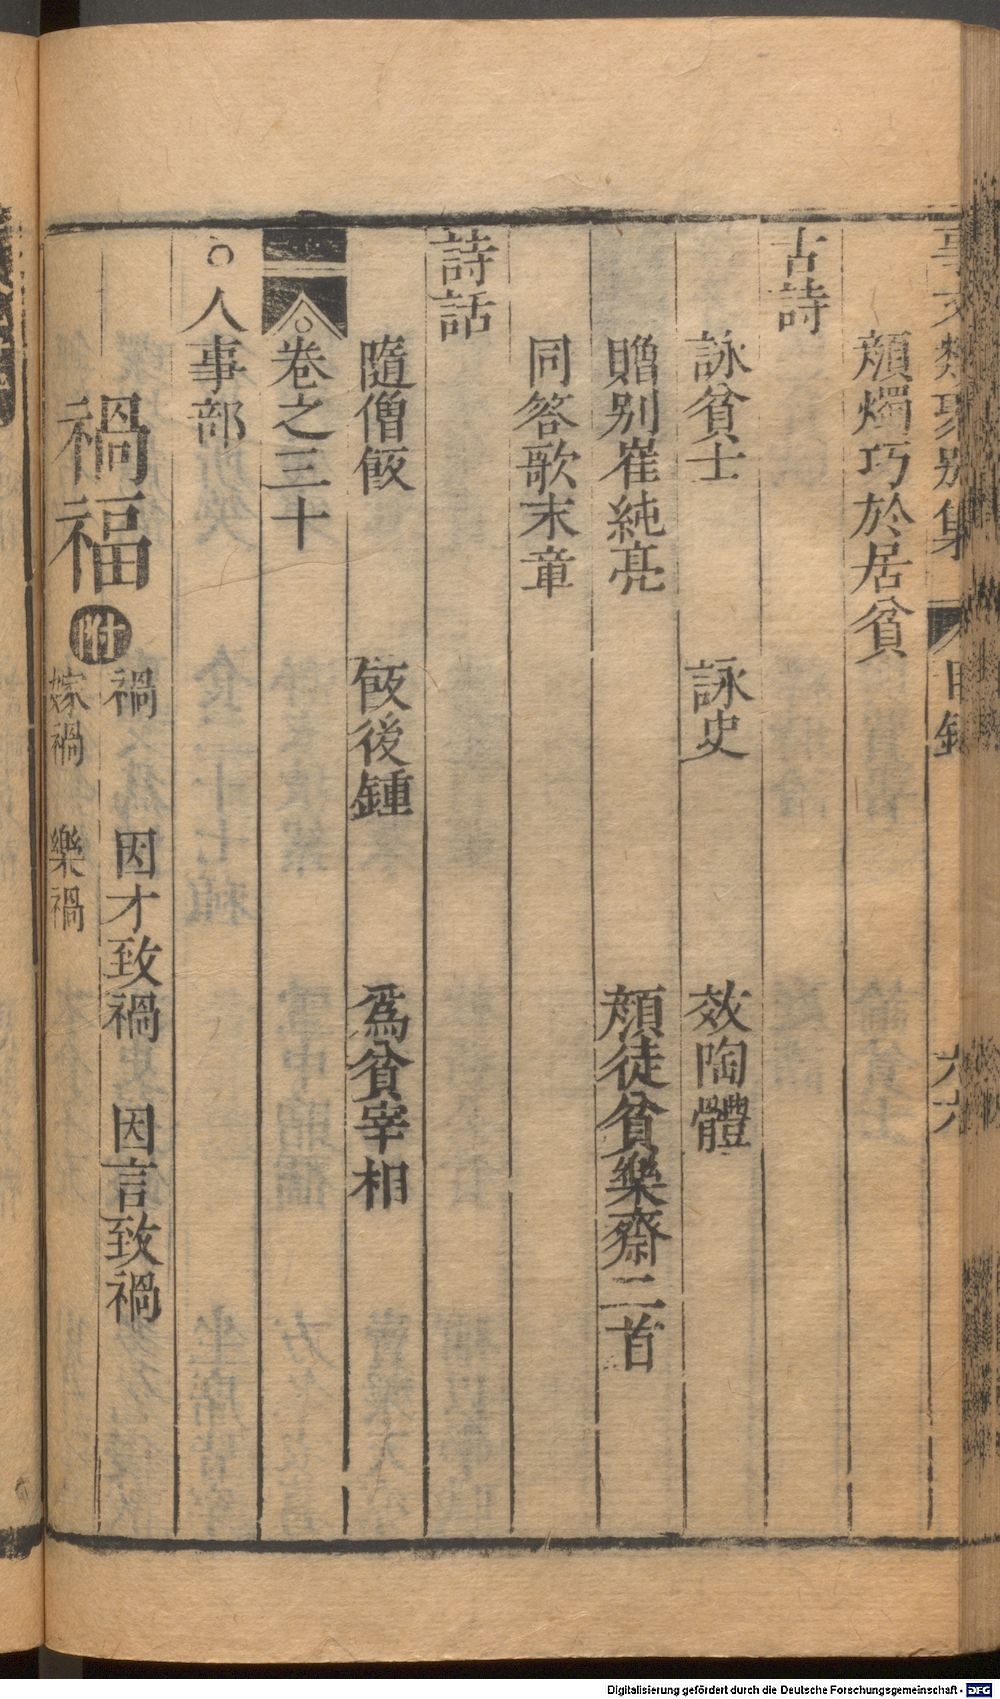 事文類聚別集 目録 六六
頽燭巧於居貧
古詩
詠貧士 詠史 效陶體
贈别崔純亮 頽徒貧樂齋二首
同答歌末章
詩話
隨僧飯 飯後鍾 爲貧宰相
○卷之三十
○人事部
禍福 附 禍 因才致禍 因言致禍
嫁禍 樂禍
Digitalisierung gefördert durch die Deutsche Forschungsgemeinschaft - DFG